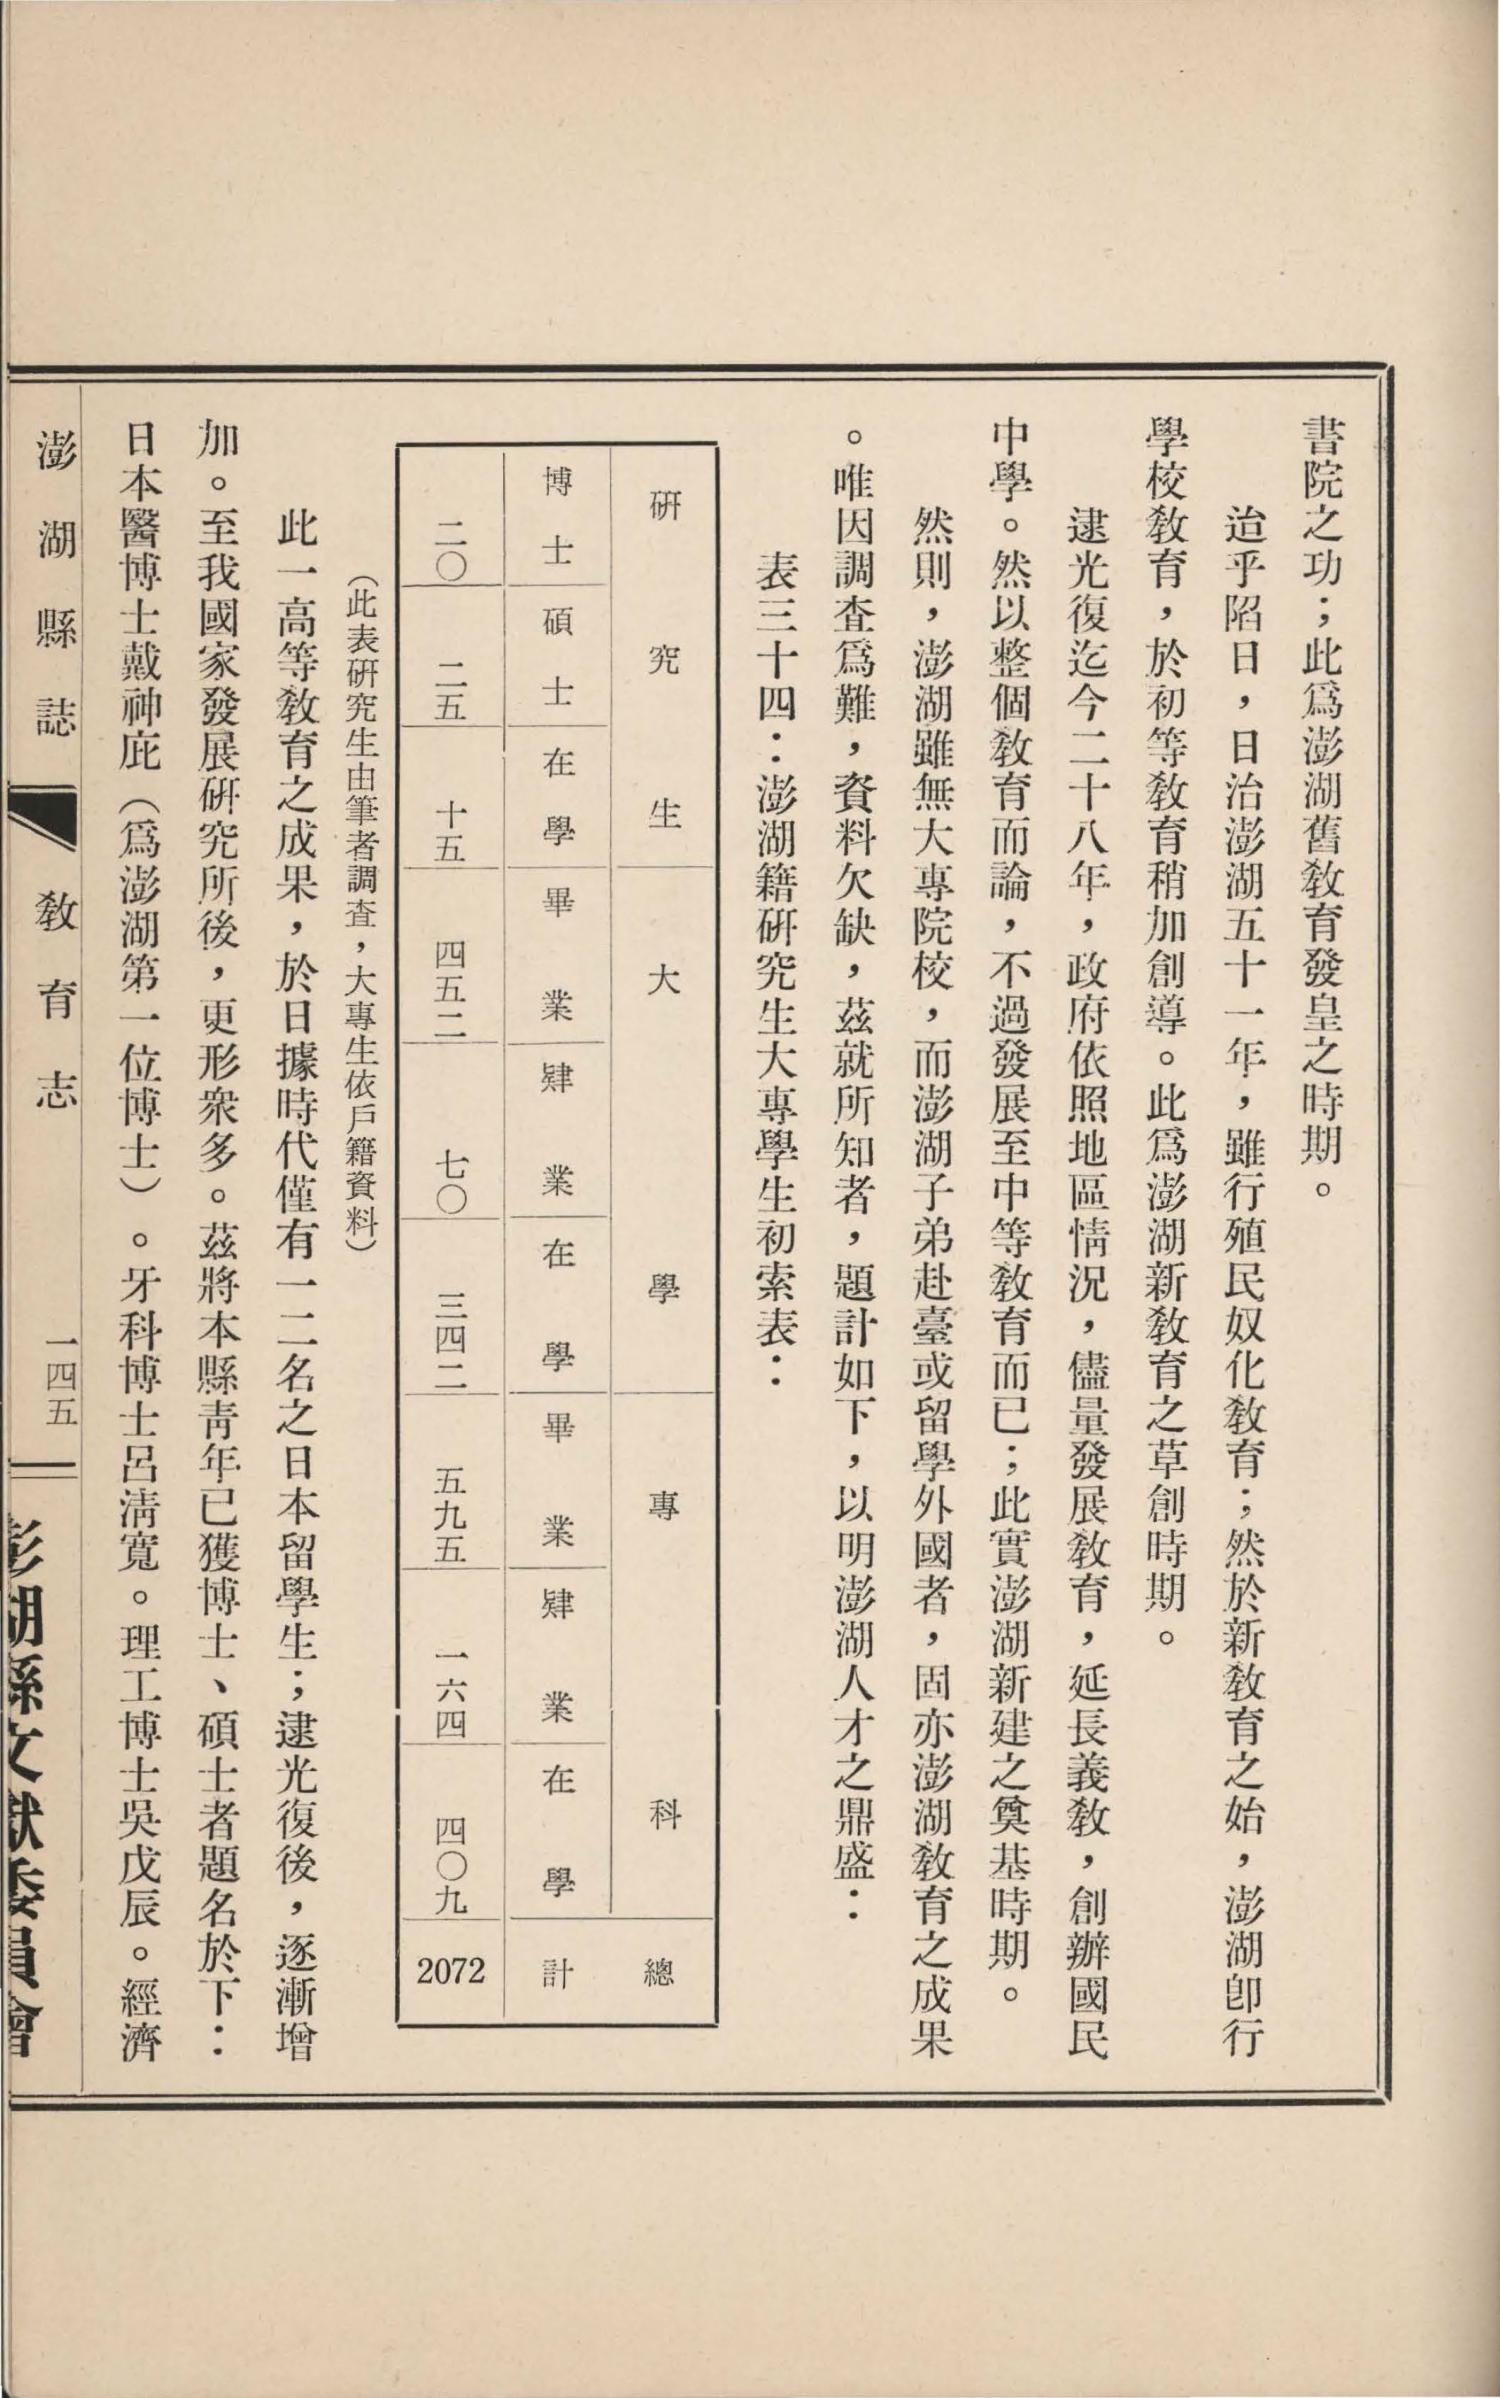 書院之功；此爲澎湖舊敎育發皇之時期。
迨乎陷日，日治澎湖五十一年，雖行殖民奴化敎育；然於新敎育之始，澎湖卽行
學校敎育，於初等敎育稍加創導。此爲澎湖新敎育之草創時期。
逮光復迄今二十八年，政府依照地區情況，儘量發展敎育，延長義敎，創辦國民
中學。然以整個敎育而論，不過發展至中等敎育而已；此實澎湖新建之奠基時期。
然則，澎湖雖無大專院校，而澎湖子弟赴臺或留學外國者，固亦澎湖敎育之成果
。唯因調查爲難，資料欠缺，茲就所知者，題計如下，以明澎湖人才之鼎盛：
表三十四：澎湖籍硏究生大專學生初索表：
硏究生 大學 專科 總
博士 碩士 在學 畢業 肄業 在學 畢業 肄業 在學 計
二〇 二五 十五 四五二 七〇 三四二 五九五 一六四 四〇九 2072
（此表硏究生由筆者調查，大專生依戶籍資料）
此一高等敎育之成果，於日據時代僅有一二名之日本留學生；逮光復後，逐漸增
加。至我國家發展硏究所後，更形衆多。茲將本縣靑年已獲博士、碩士者題名於下：
日本醫博士戴神庇（爲澎湖第一位博士）。牙科博士呂淸寬。理工博士吳戊辰。經濟
澎湖縣誌 敎育志 一四五 澎湖縣文獻委員會